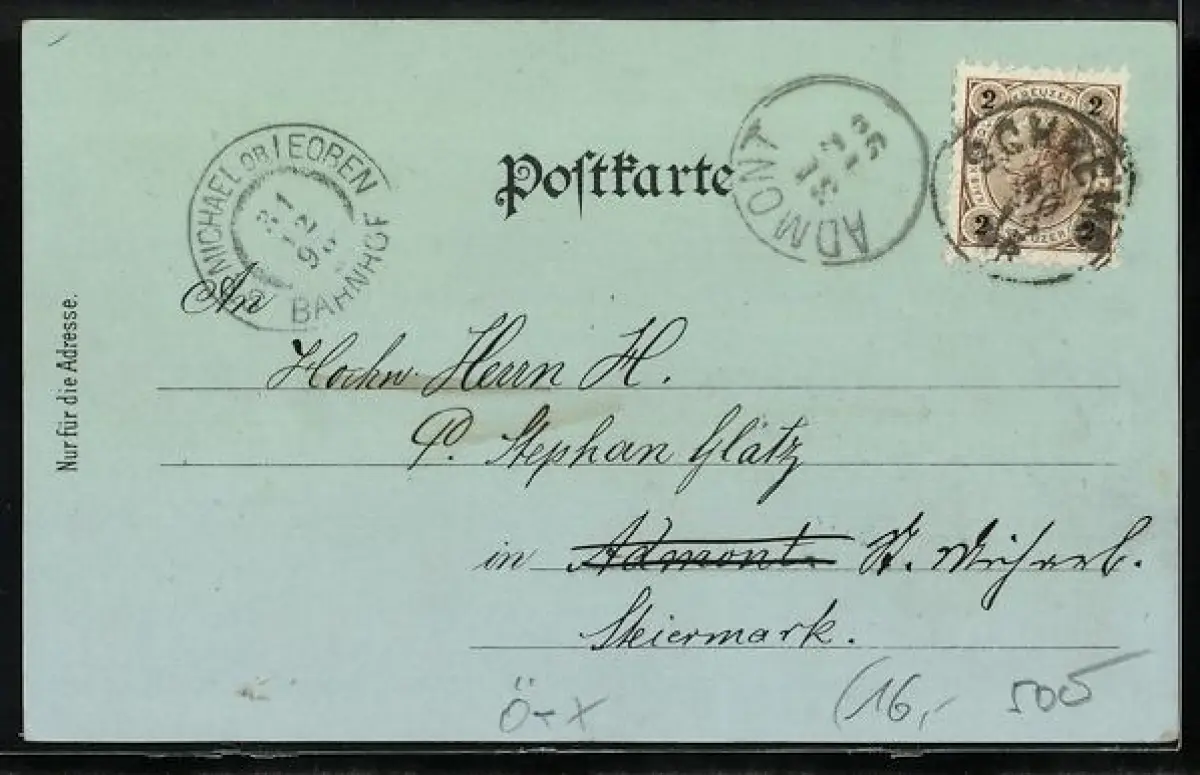 Postkarte
ST MICHAEL OB LEOBEN
31
12
98
BAHNHOF
ADMONT
31 12 98
ADMONT
2 KREUZER 2
2 KREUZER 2
Nur für die Adresse.
An
Hochw. Herrn H.
P. Stephan Glatz
in Admont St. Michael.
Steiermark.
Ö + X
(16,- 505